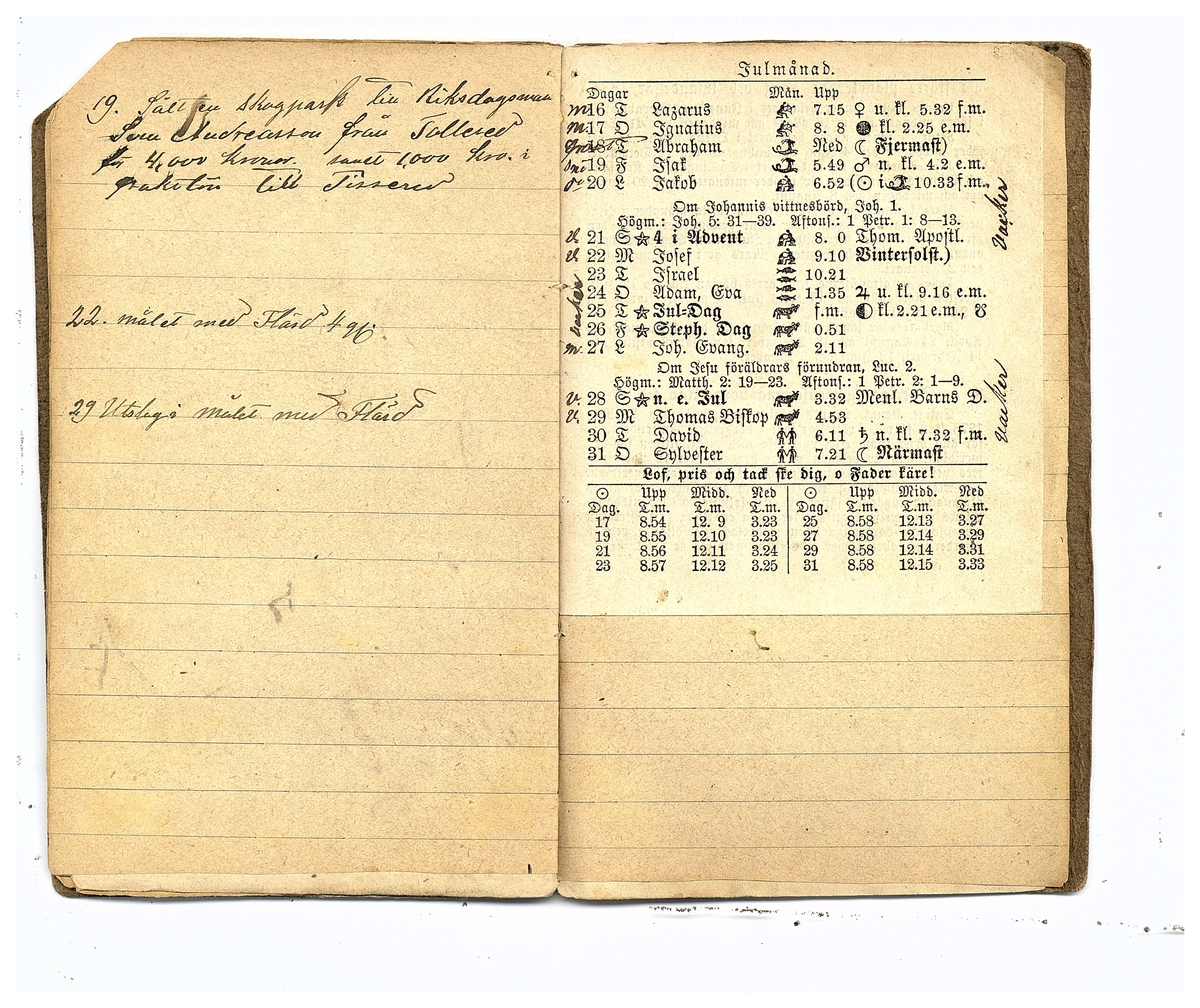 19. Sålt en skogpark till Riksdagsman
Sven Andreasson från Tollered
för 4,000 kronor. samt 1,000 kro. i
till Tissered
22. målet med Flärd 4 gg.
29 Utslag i målet med Flärd
Julmånad.
Dagar Mån. Upp
m 16 T Lazarus 7.15 ♀ u. kl. 5.32 f.m.
m. 17 O Ignatius 8. 8 kl. 2.25 e.m.
18 T Abraham Ned ☾ Fjermast)
19 F Isak 5.49 ♂ n. kl. 4.2 e.m.
20 L Jakob 6.52 (☉ i 10.33 f.m.,
Om Johannis vittnesbörd, Joh. 1.
Högm.: Joh. 5: 31—39. Aftons.: 1 Petr. 1: 8—13.
v. 21 S ☆ 4 i Advent 8. 0 Thom. Apostl.
v. 22 M Josef 9.10 Vintersolst.)
23 T Israel 10.21
24 O Adam, Eva 11.35 ♃ u. kl. 9.16 e.m.
25 T ☆ Jul-Dag f.m. kl. 2.21 e.m., ☊
26 F ☆ Steph. Dag 0.51
m. 27 L Joh. Evang. 2.11
Om Jesu föräldrars förundran, Luc. 2.
Högm.: Matth. 2: 19—23. Aftons.: 1 Petr. 2: 1—9.
v. 28 S ☆ n. e. Jul 3.32 Menl. Barns D.
v. 29 M Thomas Biskop 4.53
30 T David 6.11 ♄ n. kl. 7.32 f.m.
31 O Sylvester 7.21 ☾ Närmast
vacker
vacker
vacker
Lof, pris och tack ske dig, o Fader käre!
☉ Upp Midd. Ned ☉ Upp Midd. Ned
Dag. T.m. T.m. T.m. Dag. T.m. T.m. T.m.
17 8.54 12. 9 3.23 25 8.58 12.13 3.27
19 8.55 12.10 3.23 27 8.58 12.14 3.29
21 8.56 12.11 3.24 29 8.58 12.14 3.31
23 8.57 12.12 3.25 31 8.58 12.15 3.33